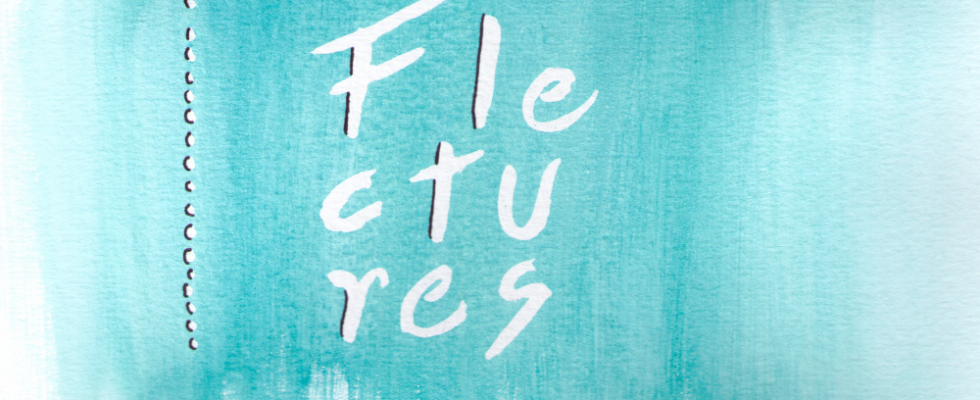 Fle
ctu
res